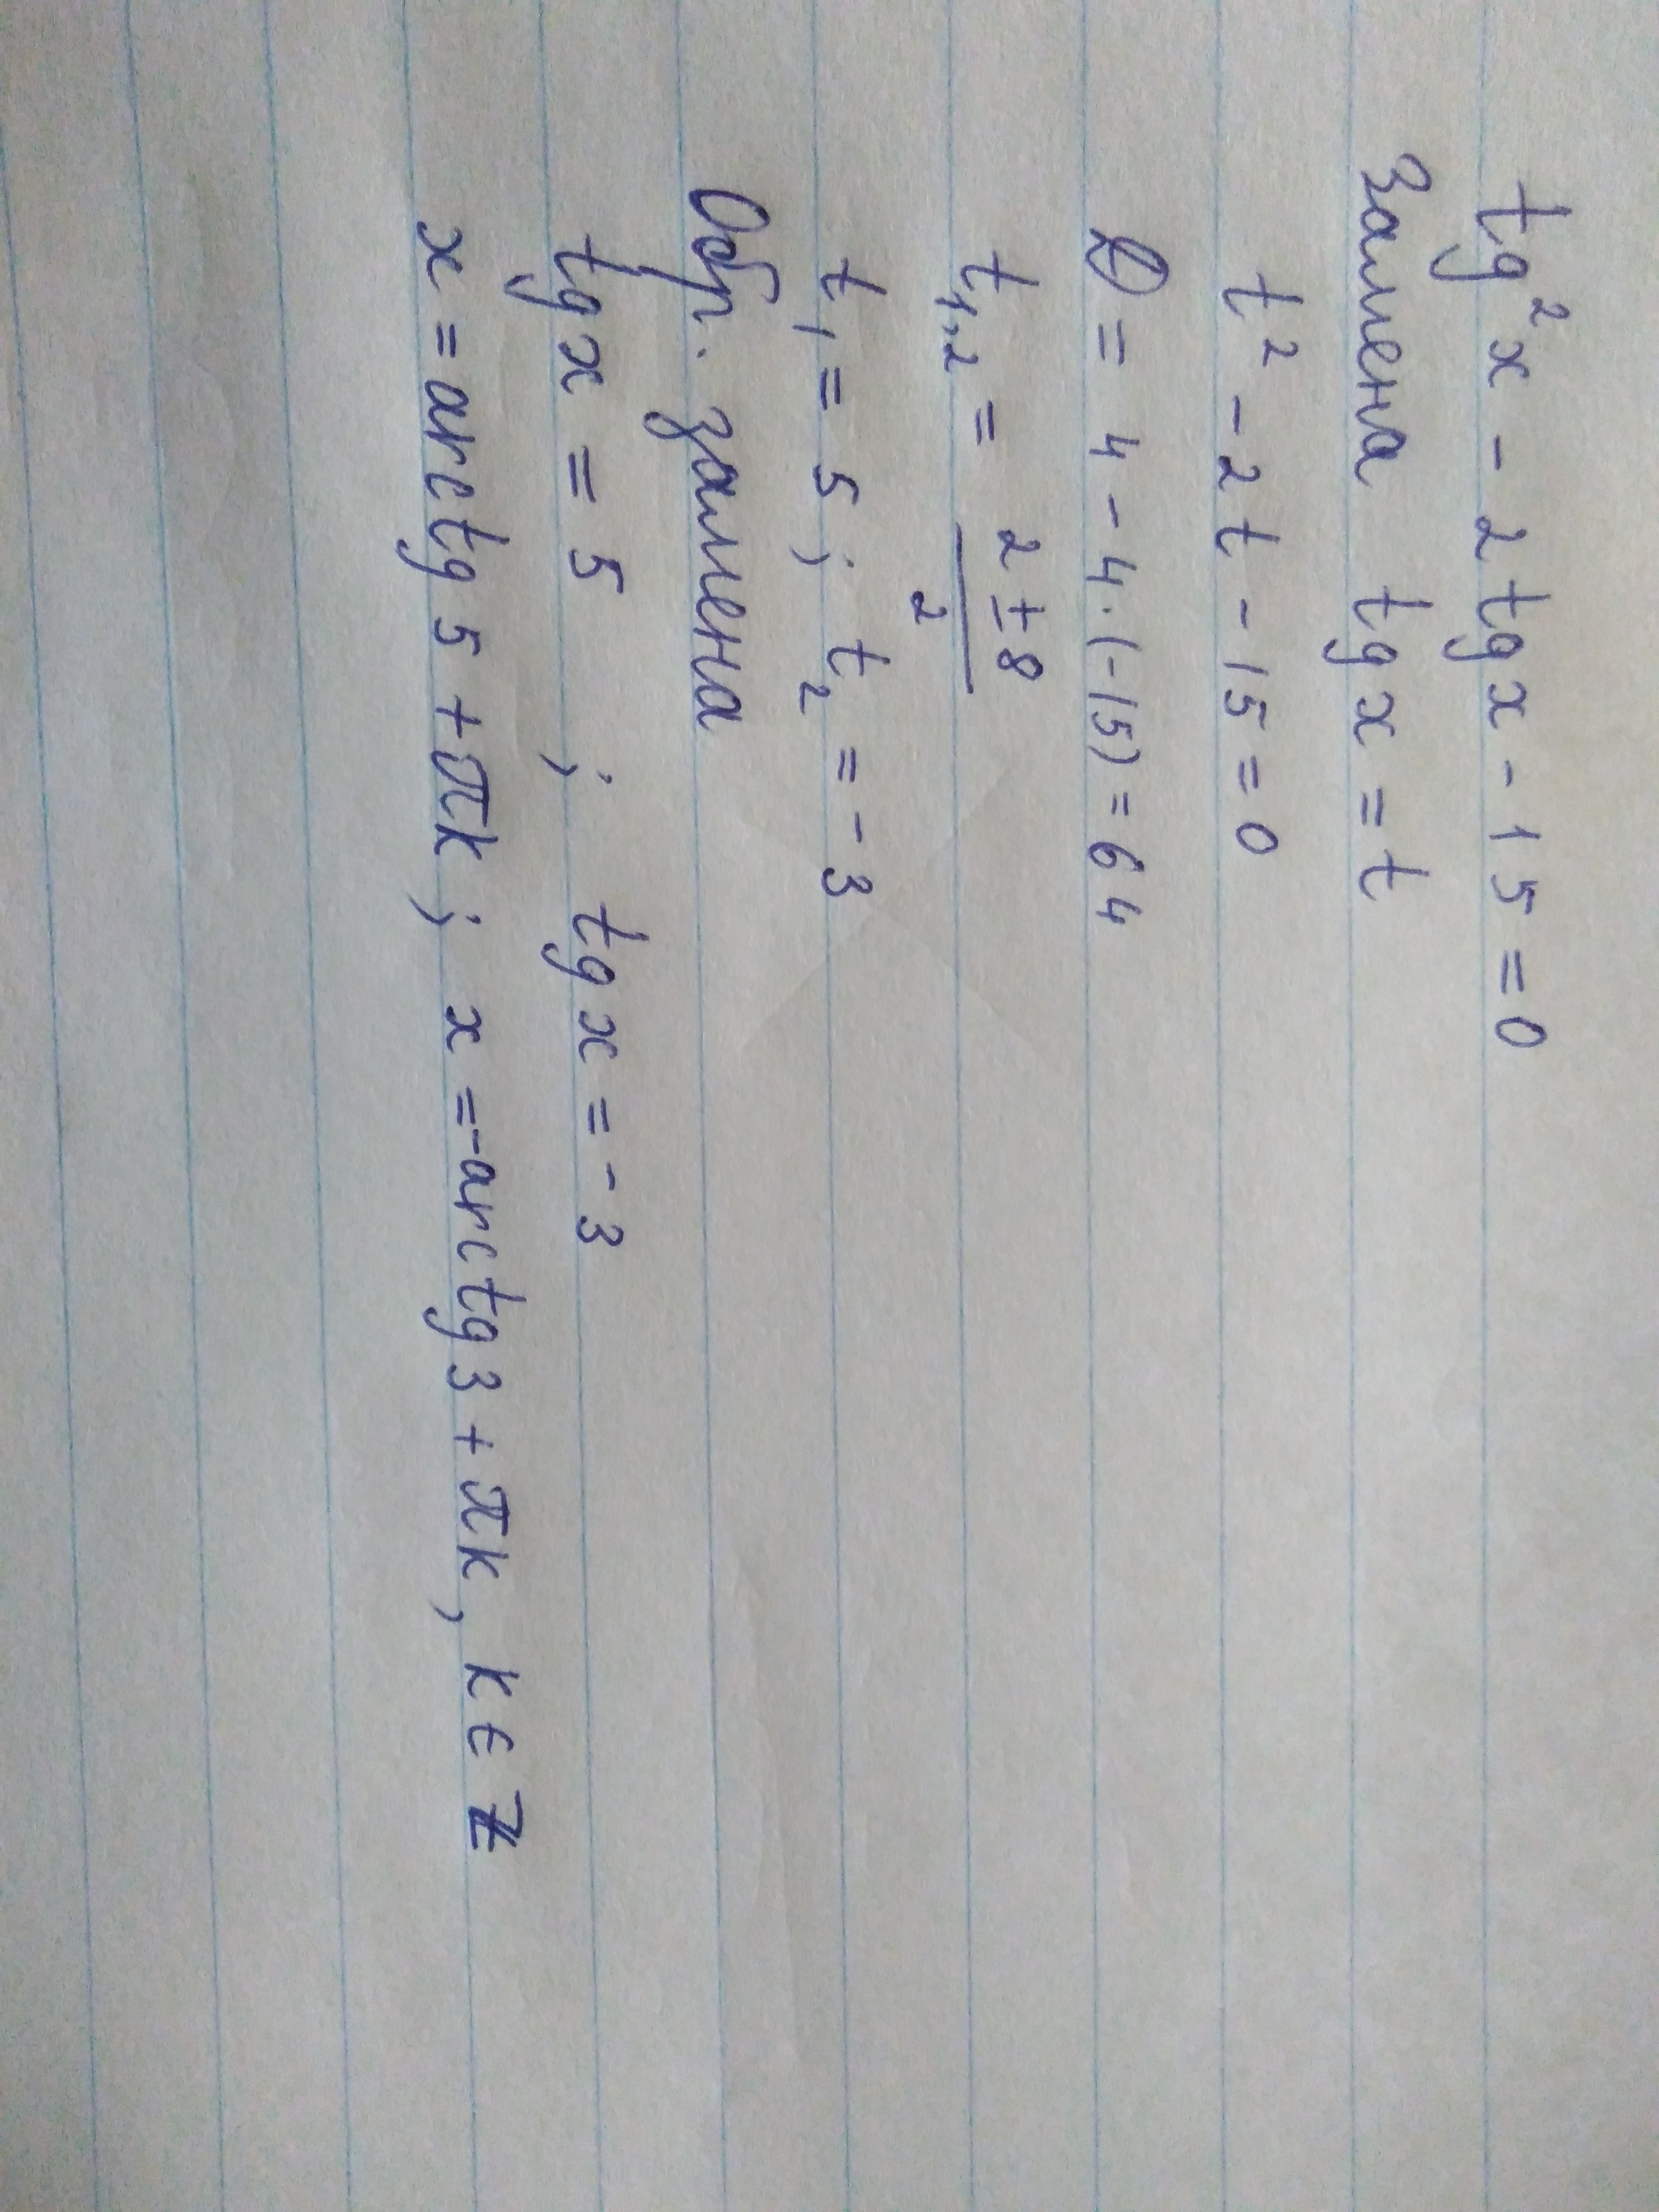 tg²x - 2tgx - 15 = 0
Замена tgx = t
t² - 2t - 15 = 0
D = 4 - 4·(-15) = 64
t₁,₂ = (2 ± 8)/2
t₁ = 5; t₂ = -3
Обр. замена
tgx = 5 ; tgx = -3
x = arctg 5 + πk; x = -arctg3 + πk, k ∈ Z